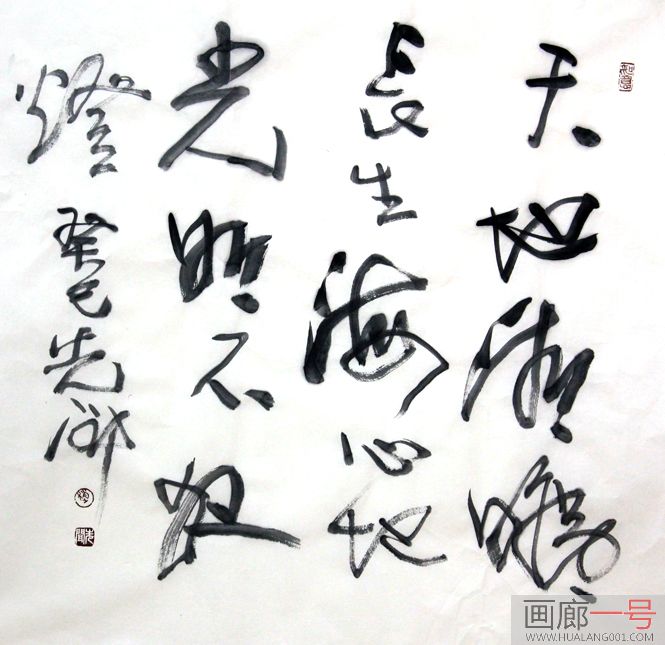 天地清曠
長生海心地
光明不夜
燈 癸巳先
画廊一号
WWW.HUALANG001.COM